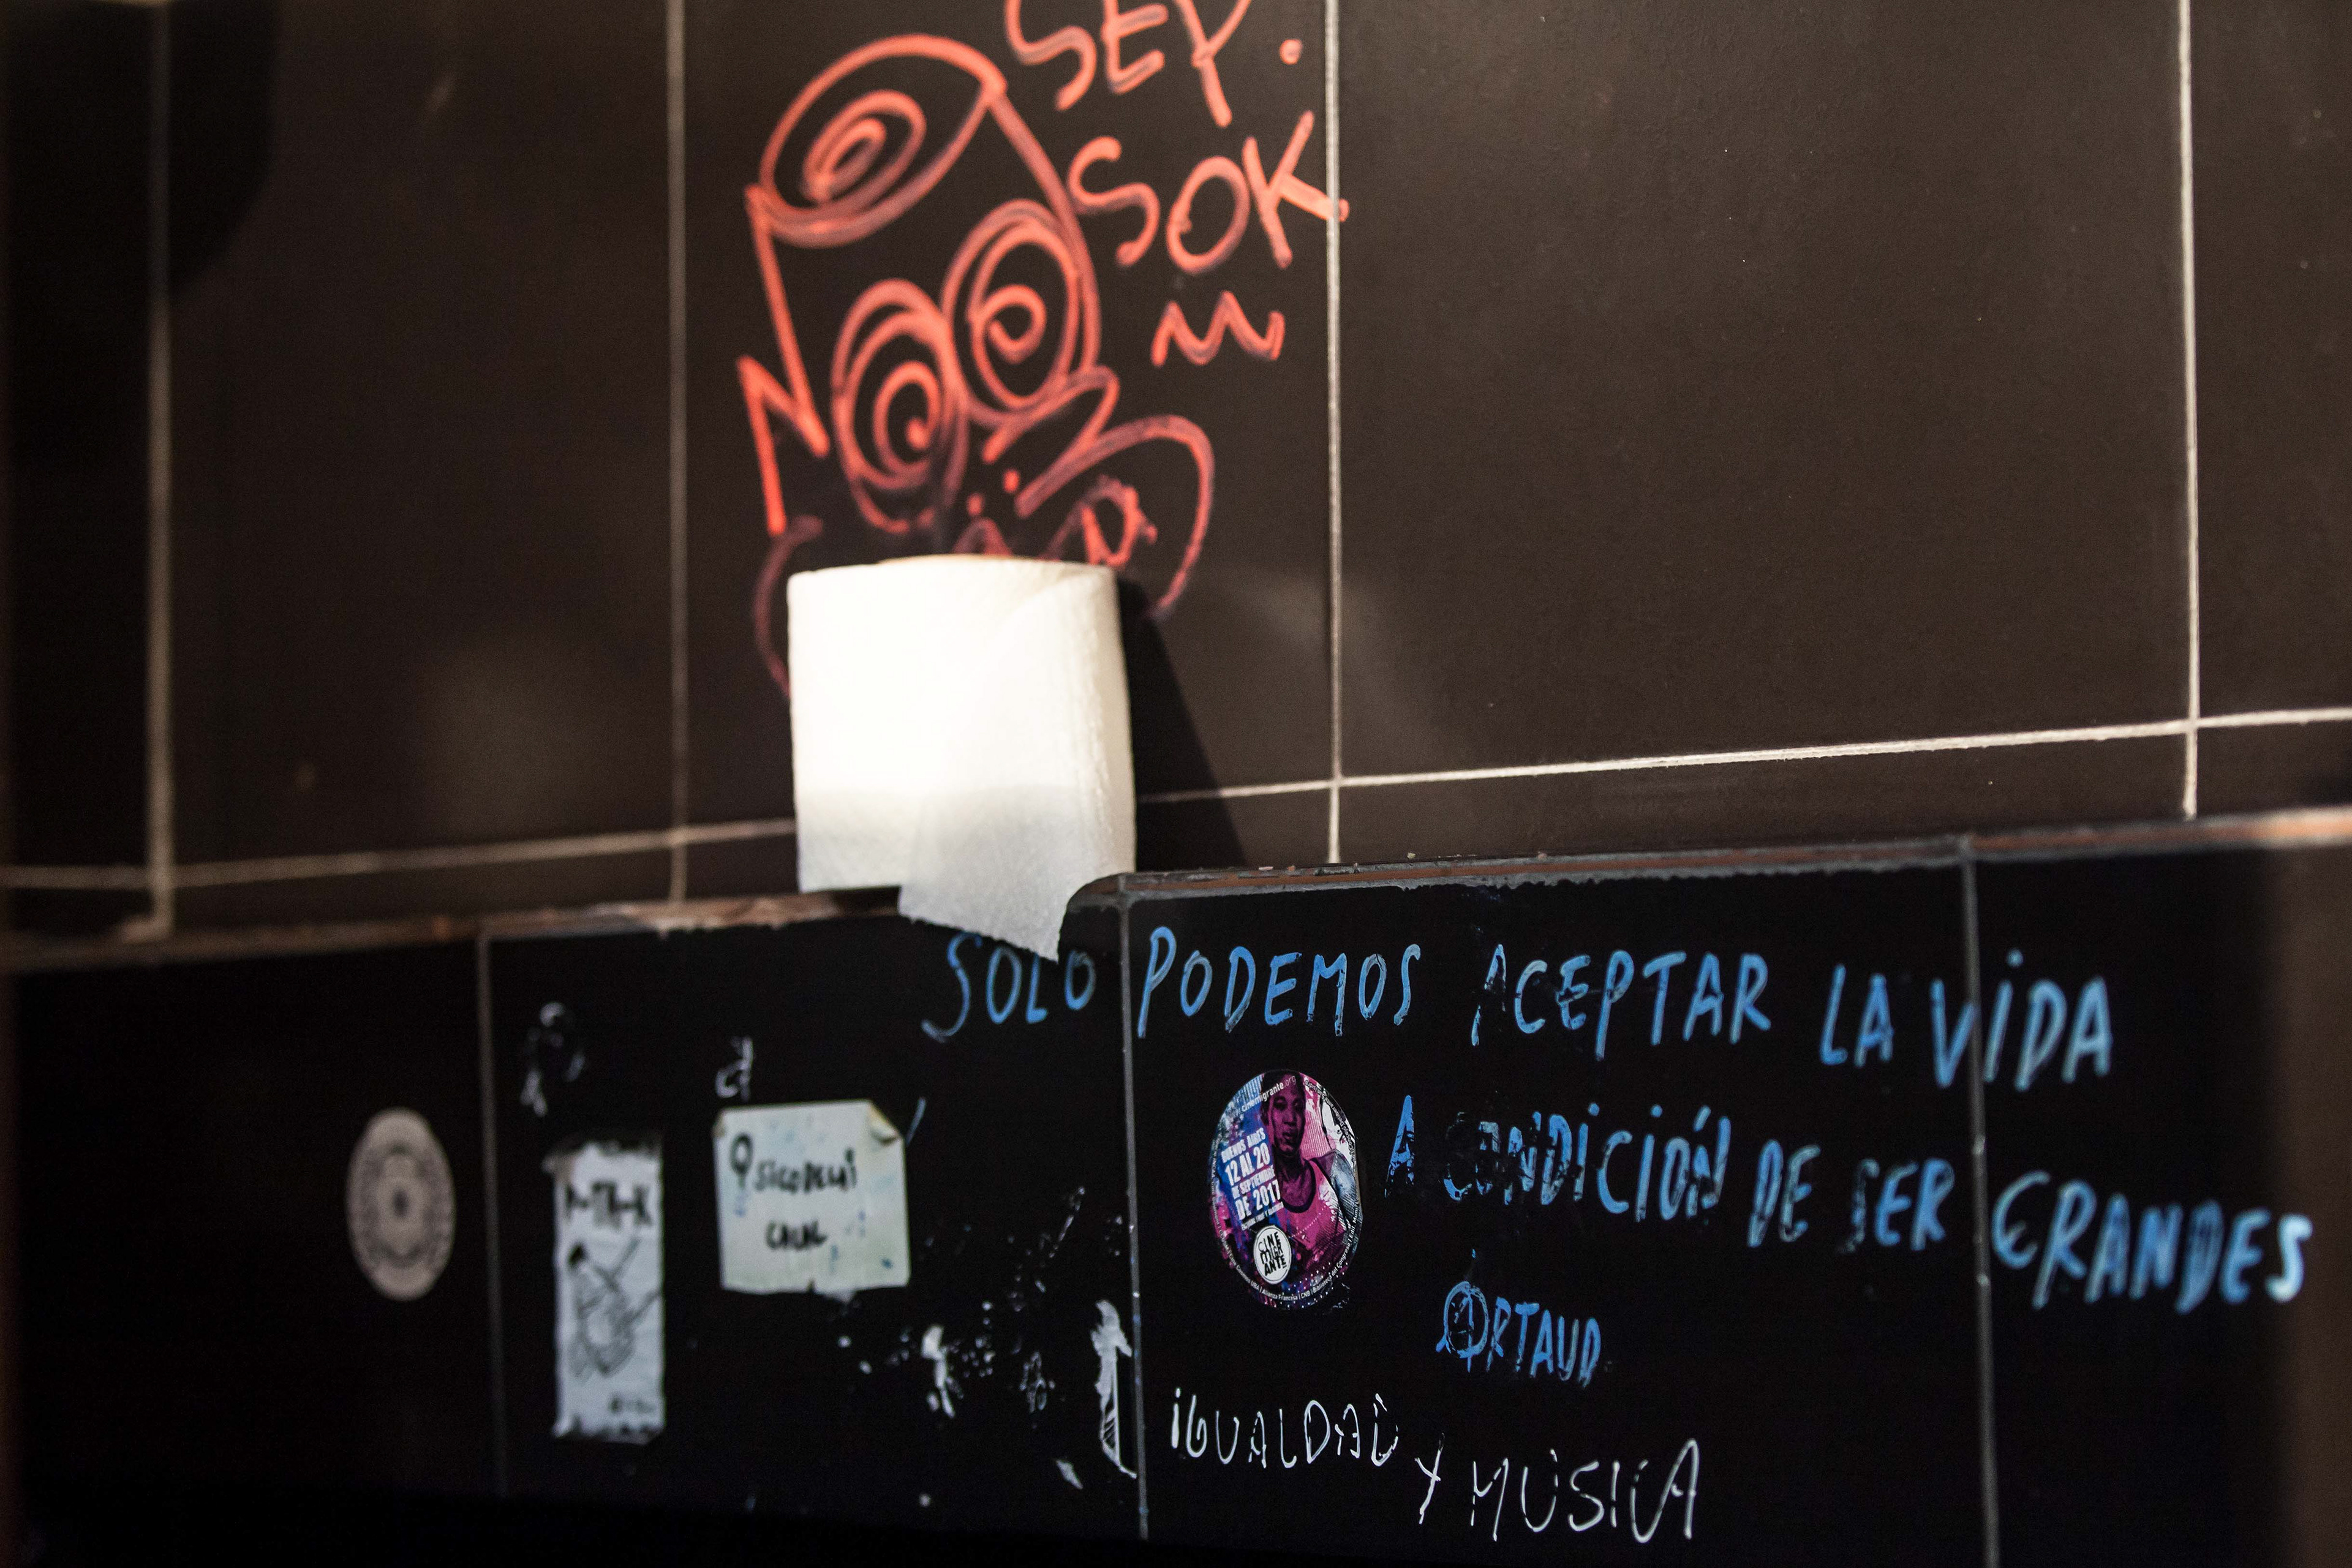 SEP.
SOK
SOLO PODEMOS ACEPTAR LA VIDA
A CONDICIÓN DE SER GRANDES
ARTAUD
IGUALDAD Y MÚSICA
BUENOS AIRES
12 AL 20
DE SEPTIEMBRE
DE 2017
CINE
MIGR
ANTE